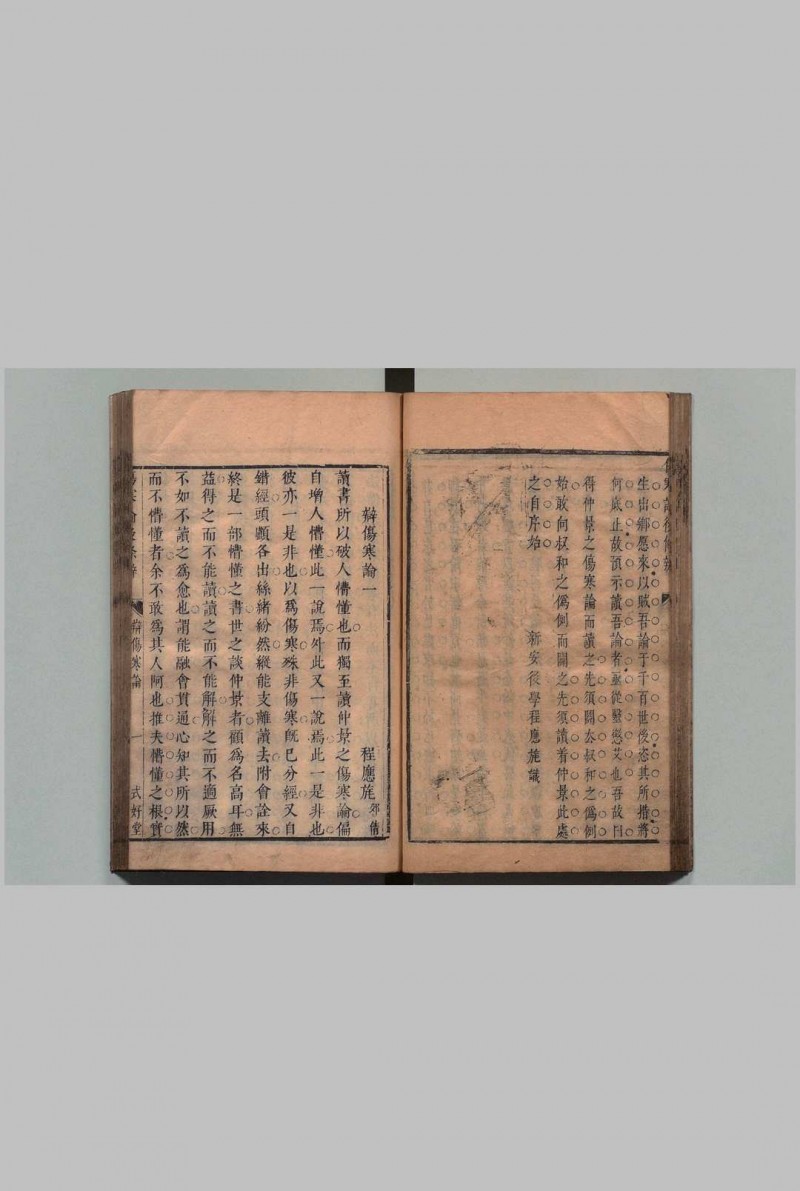 生出鄉愿來以賊吾論于千百世後恣其所措將
何底止故預示讀吾論者亟從
艾也吾故曰
得仲景之傷寒論而讀之先須闢去叔和之僞例
始敢向叔和之僞例而闢之先須讀着仲景此處
之自序始
新安後學程應旄識
辯傷寒論一
程應旄郊倩
讀書所以破人懵懂也而獨至讀仲景之傷寒論偏
自增人懵懂此一說焉外此又一說焉此一是非也
彼亦一是非也以爲傷寒殊非傷寒旣已分經又自
錯經頭顱各出絲緒紛然縱能支離讀去附會詮來
終是一部懵懂之書世之談仲景者顧爲名高耳無
益得之而不能讀讀之而不能解解之而不適厥用
不如不讀之爲愈也謂能融會貫通心知其所以然
而不懵懂者余不敢爲其人阿也推夫懵懂之根實
辯傷寒論
一
式好堂